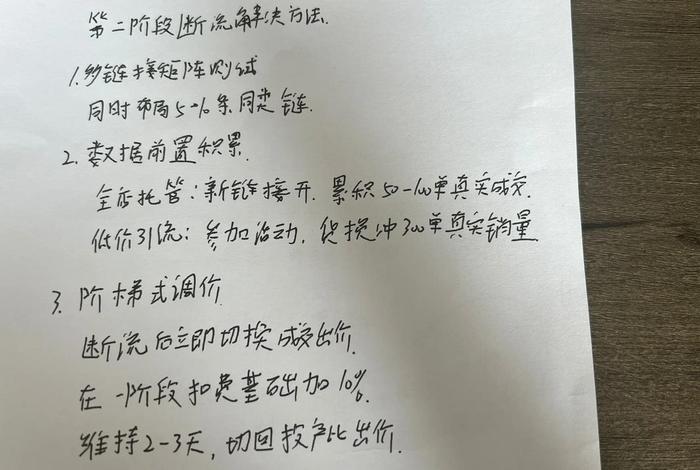 第二阶段断流解决方法.
1.多链接矩阵测试
同时布局5-10条同类链.
2.数据前置积累.
全店托管:新链接开.累积50-100单真实成交.
低价引流:参加活动,货损冲300单真实销量
3.阶梯式调价
断流后立即切换成交出价.
在一阶段扣费基础加10%.
维持2-3天,切回投产比出价.